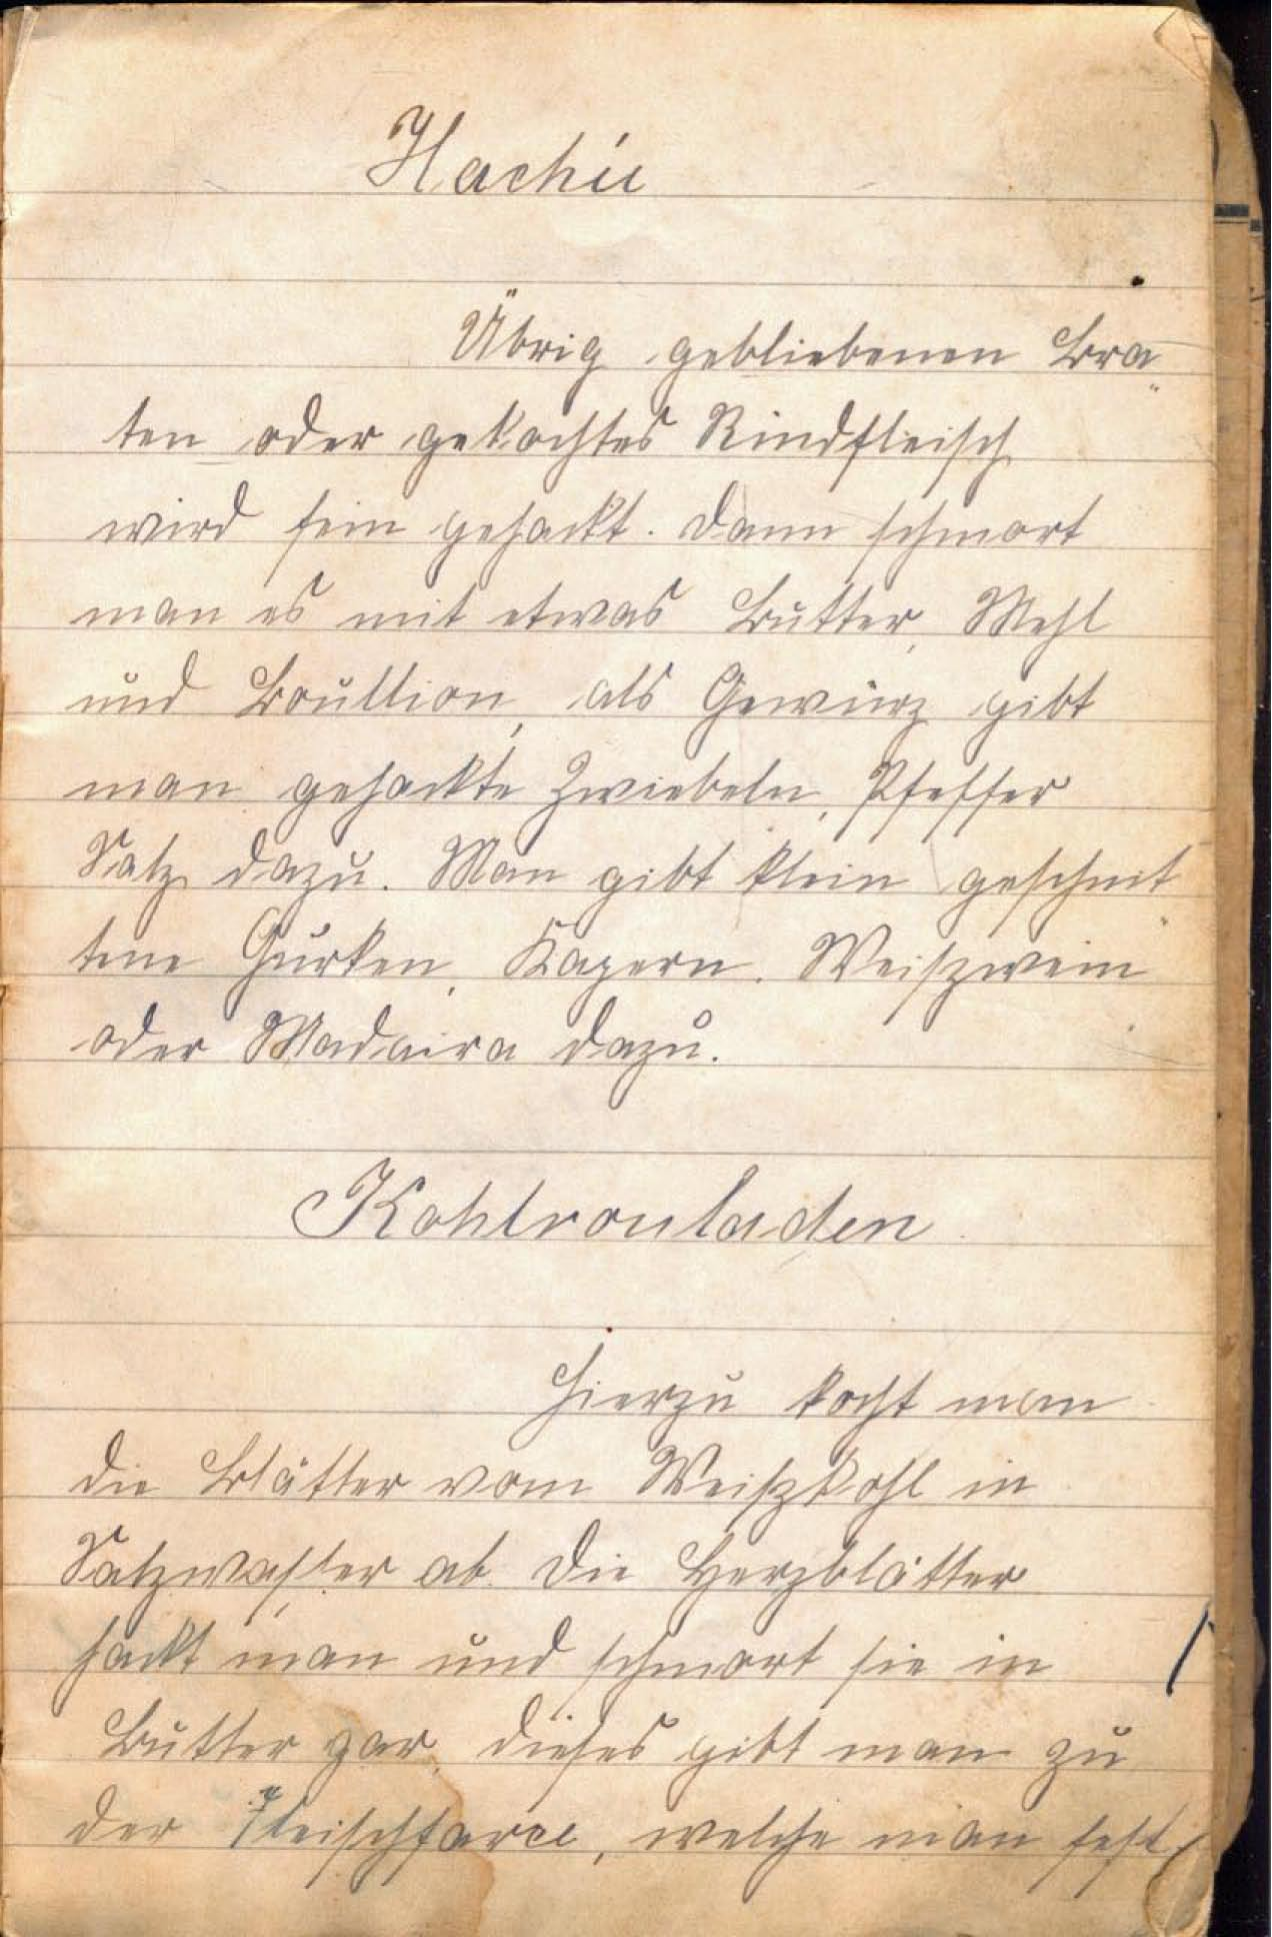 Hachie
Übrig gebliebenen Bra„
ten oder gekochtes Rindfleisch
wird fein gehackt. Dann schmort
man es mit etwas Butter, Mehl
und Boullion, als Gewürz gibt
man gehackte Zwiebeln, Pfeffer
Salz dazu. Man gibt klein geschnit„
tene Gurken, Kapern, Weißwein
oder Madaira dazu.
Kohlrouladen
Hierzu kocht man
die Blätter vom Weißkohl in
Salzwasser ab. Die Herzblätter
hackt man und schmort sie in
Butter gar, dieses gibt man zu
der Fleischfarce, welche man fest